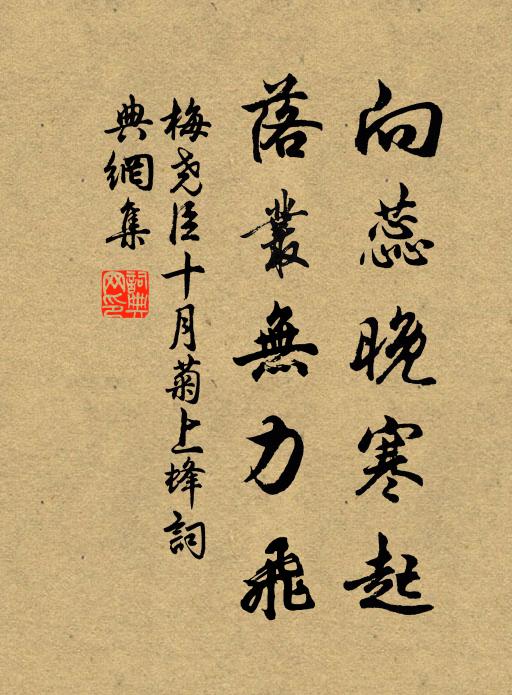 向蕊晚寒起
落叢無力飛
梅尧臣十月菊上蜂詞
典網集
詞典
网印